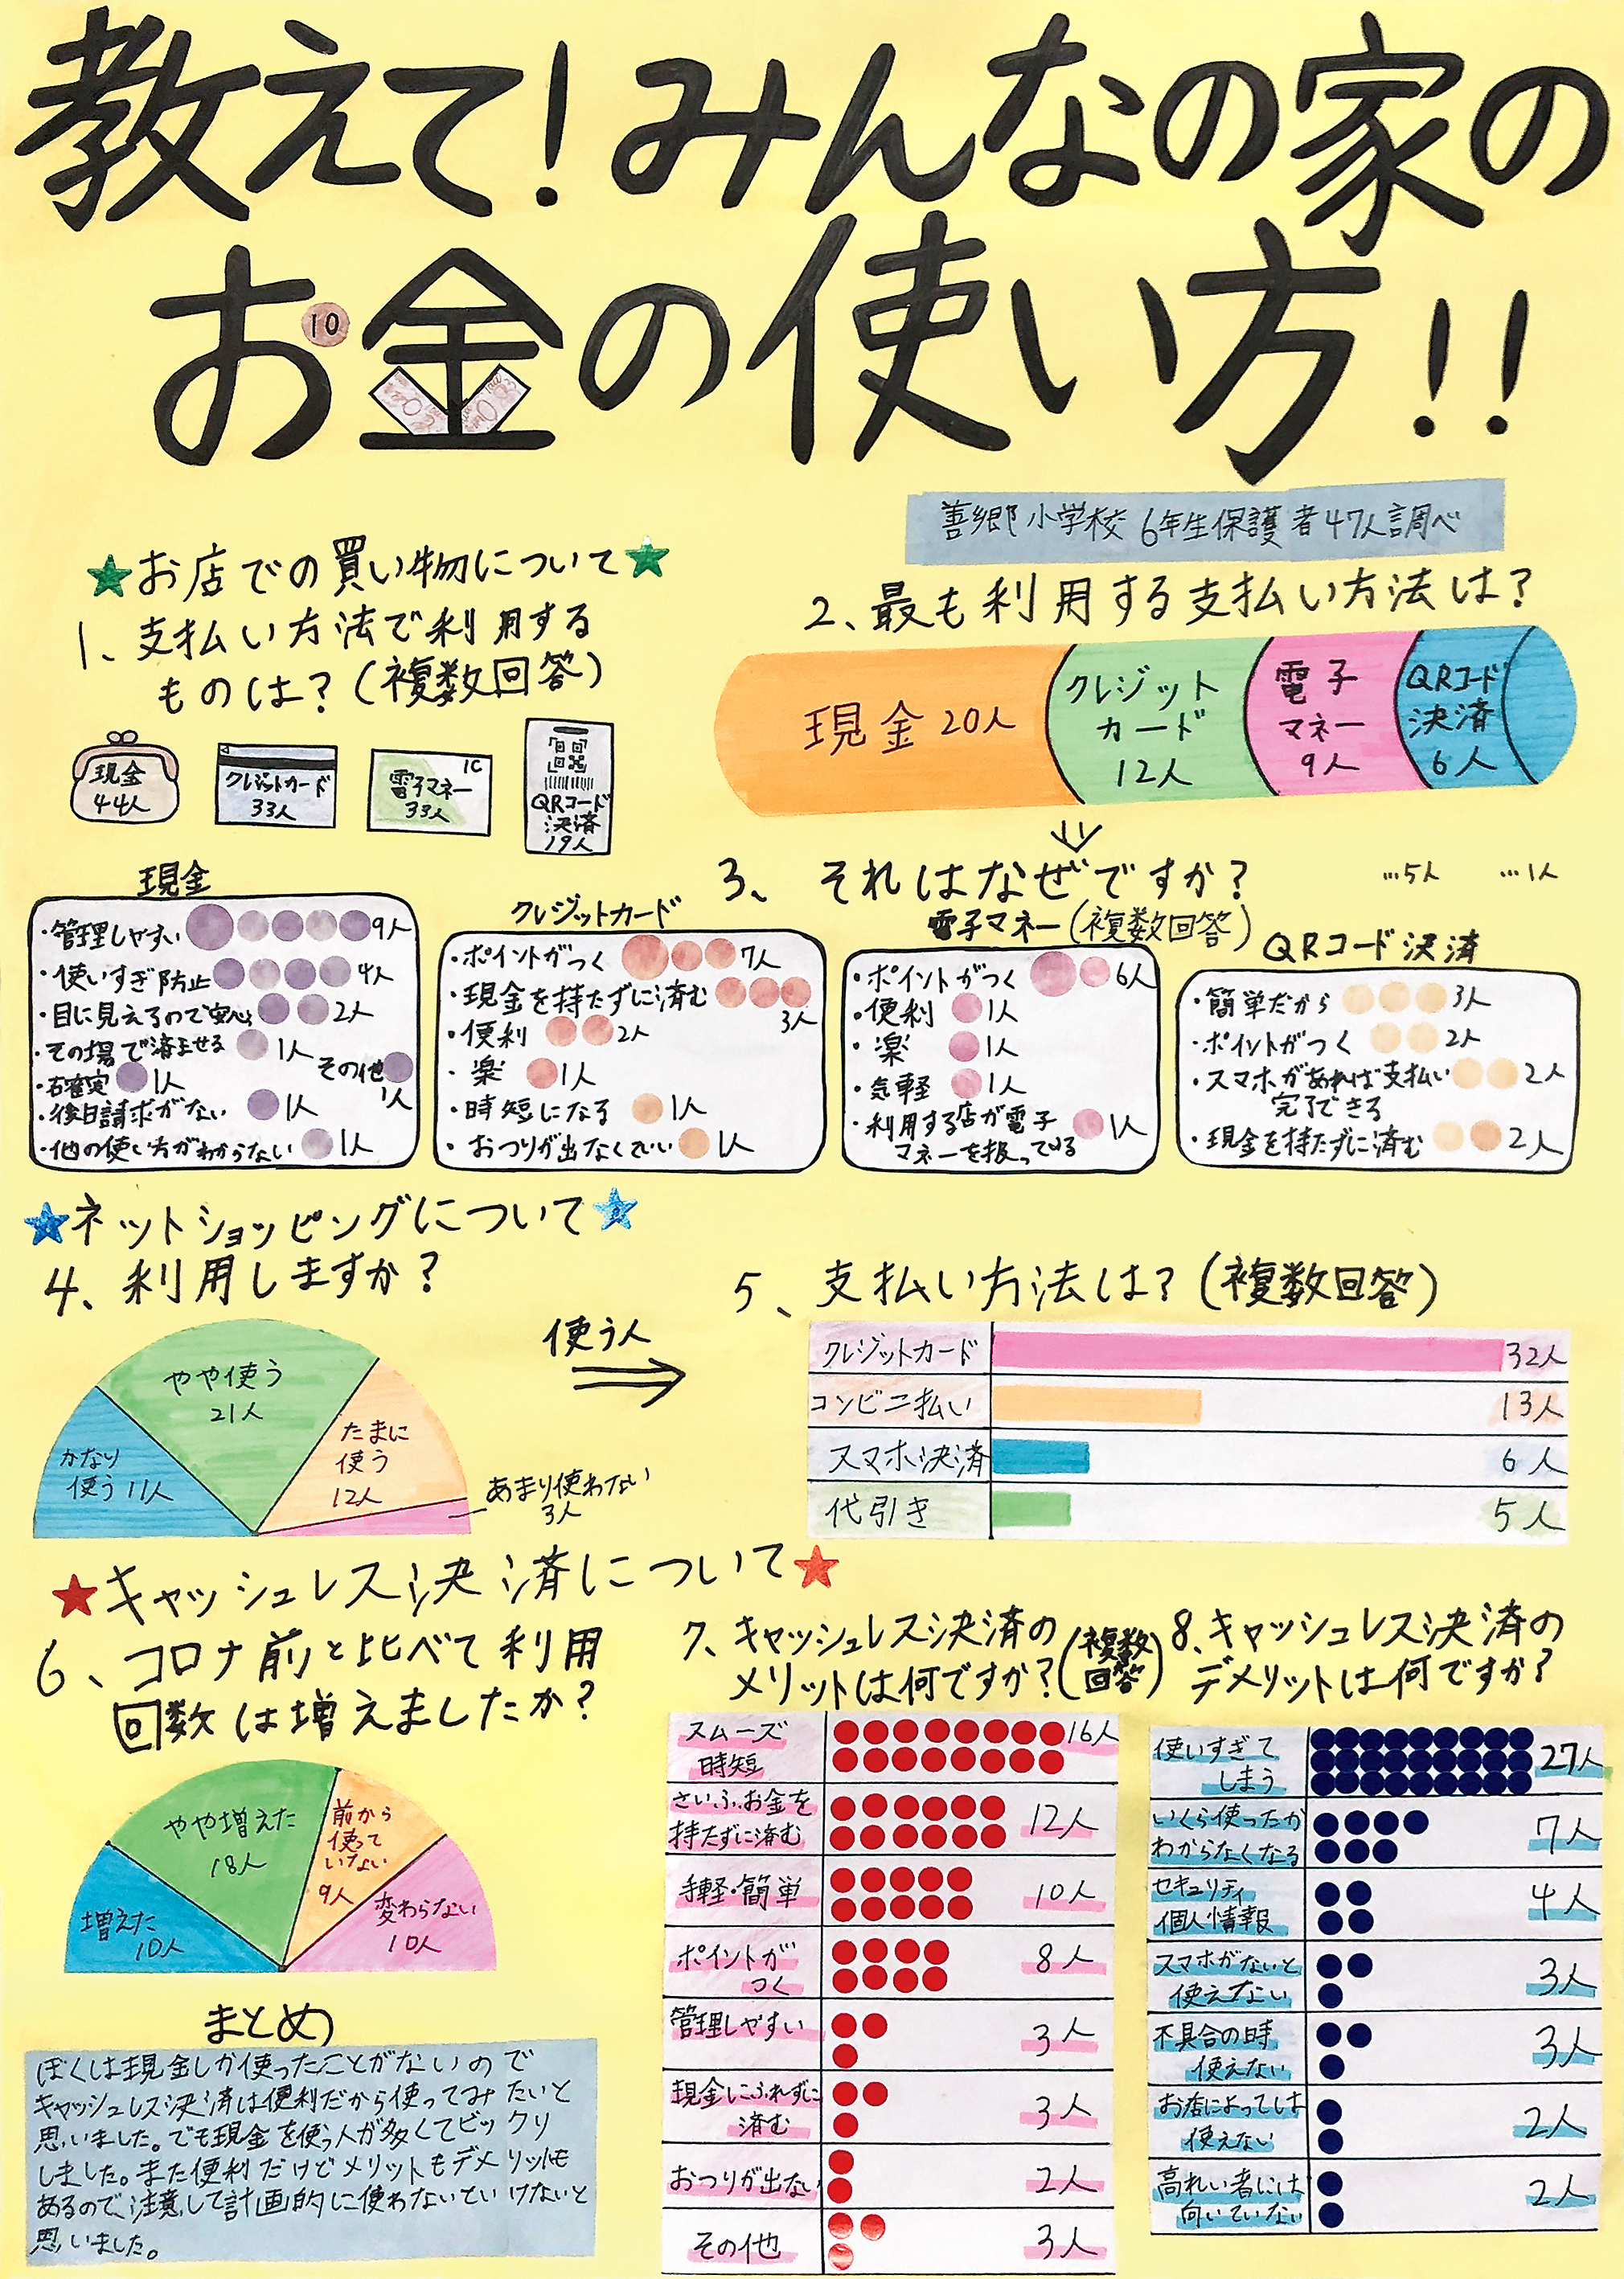 教えて！みんなの家の
お金の使い方！！
10
善郷小学校 6年生保護者47人調べ
★お店での買い物について★
1、支払い方法で利用する
ものは？（複数回答）
現金
44人
クレジットカード
33人
IC
電子マネー
33人
QRコード
決済
19人
2、最も利用する支払い方法は？
現金 20人
クレジット
カード
12人
電子
マネー
9人
QRコード
決済
6人
3、それはなぜですか？
（複数回答）
…5人 …1人
現金
・管理しやすい 9人
・使いすぎ防止 4人
・目に見えるので安心 2人
・その場で済ませる 1人
・確実 1人
その他
1人
・後日請求がない 1人
・他の使い方がわからない 1人
クレジットカード
・ポイントがつく 7人
・現金を持たずに済む
3人
・便利 2人
・楽 1人
・時短になる 1人
・おつりが出なくていい 1人
電子マネー
・ポイントがつく 6人
・便利 1人
・楽 1人
・気軽 1人
・利用する店が電子 1人
マネーを扱ってる
QRコード決済
・簡単だから 3人
・ポイントがつく 2人
・スマホがあれば支払い 2人
完了できる
・現金を持たずに済む 2人
★ネットショッピングについて★
4、利用しますか？
かなり
使う 11人
やや使う
21人
たまに
使う
12人
あまり使わない
3人
使う人
5、支払い方法は？（複数回答）
クレジットカード 32人
コンビニ払い 13人
スマホ決済 6人
代引き 5人
★キャッシュレス決済について★
6、コロナ前と比べて利用
回数は増えましたか？
増えた
10人
やや増えた
18人
前から
使って
いない
9人
変わらない
10人
7、キャッシュレス決済の
メリットは何ですか？（複数回答）
スムーズ 16人
時短
さいふ、お金を
持たずに済む 12人
手軽・簡単 10人
ポイントが
つく 8人
管理しやすい 3人
現金にふれずに
済む 3人
おつりが出ない 2人
その他 3人
8、キャッシュレス決済の
デメリットは何ですか？
使いすぎて
しまう 27人
いくら使ったか
わからなくなる 7人
セキュリティ
個人情報 4人
スマホがないと
使えない 3人
不具合の時
使えない 3人
お店によっては
使えない 2人
高れい者には
向いていない 2人
まとめ
ぼくは現金しか使ったことがないので
キャッシュレス決済は便利だから使ってみたいと
思いました。でも現金を使う人が多くてビックリ
しました。また便利だけどメリットもデメリットも
あるので、注意して計画的に使わないといけないと
思いました。